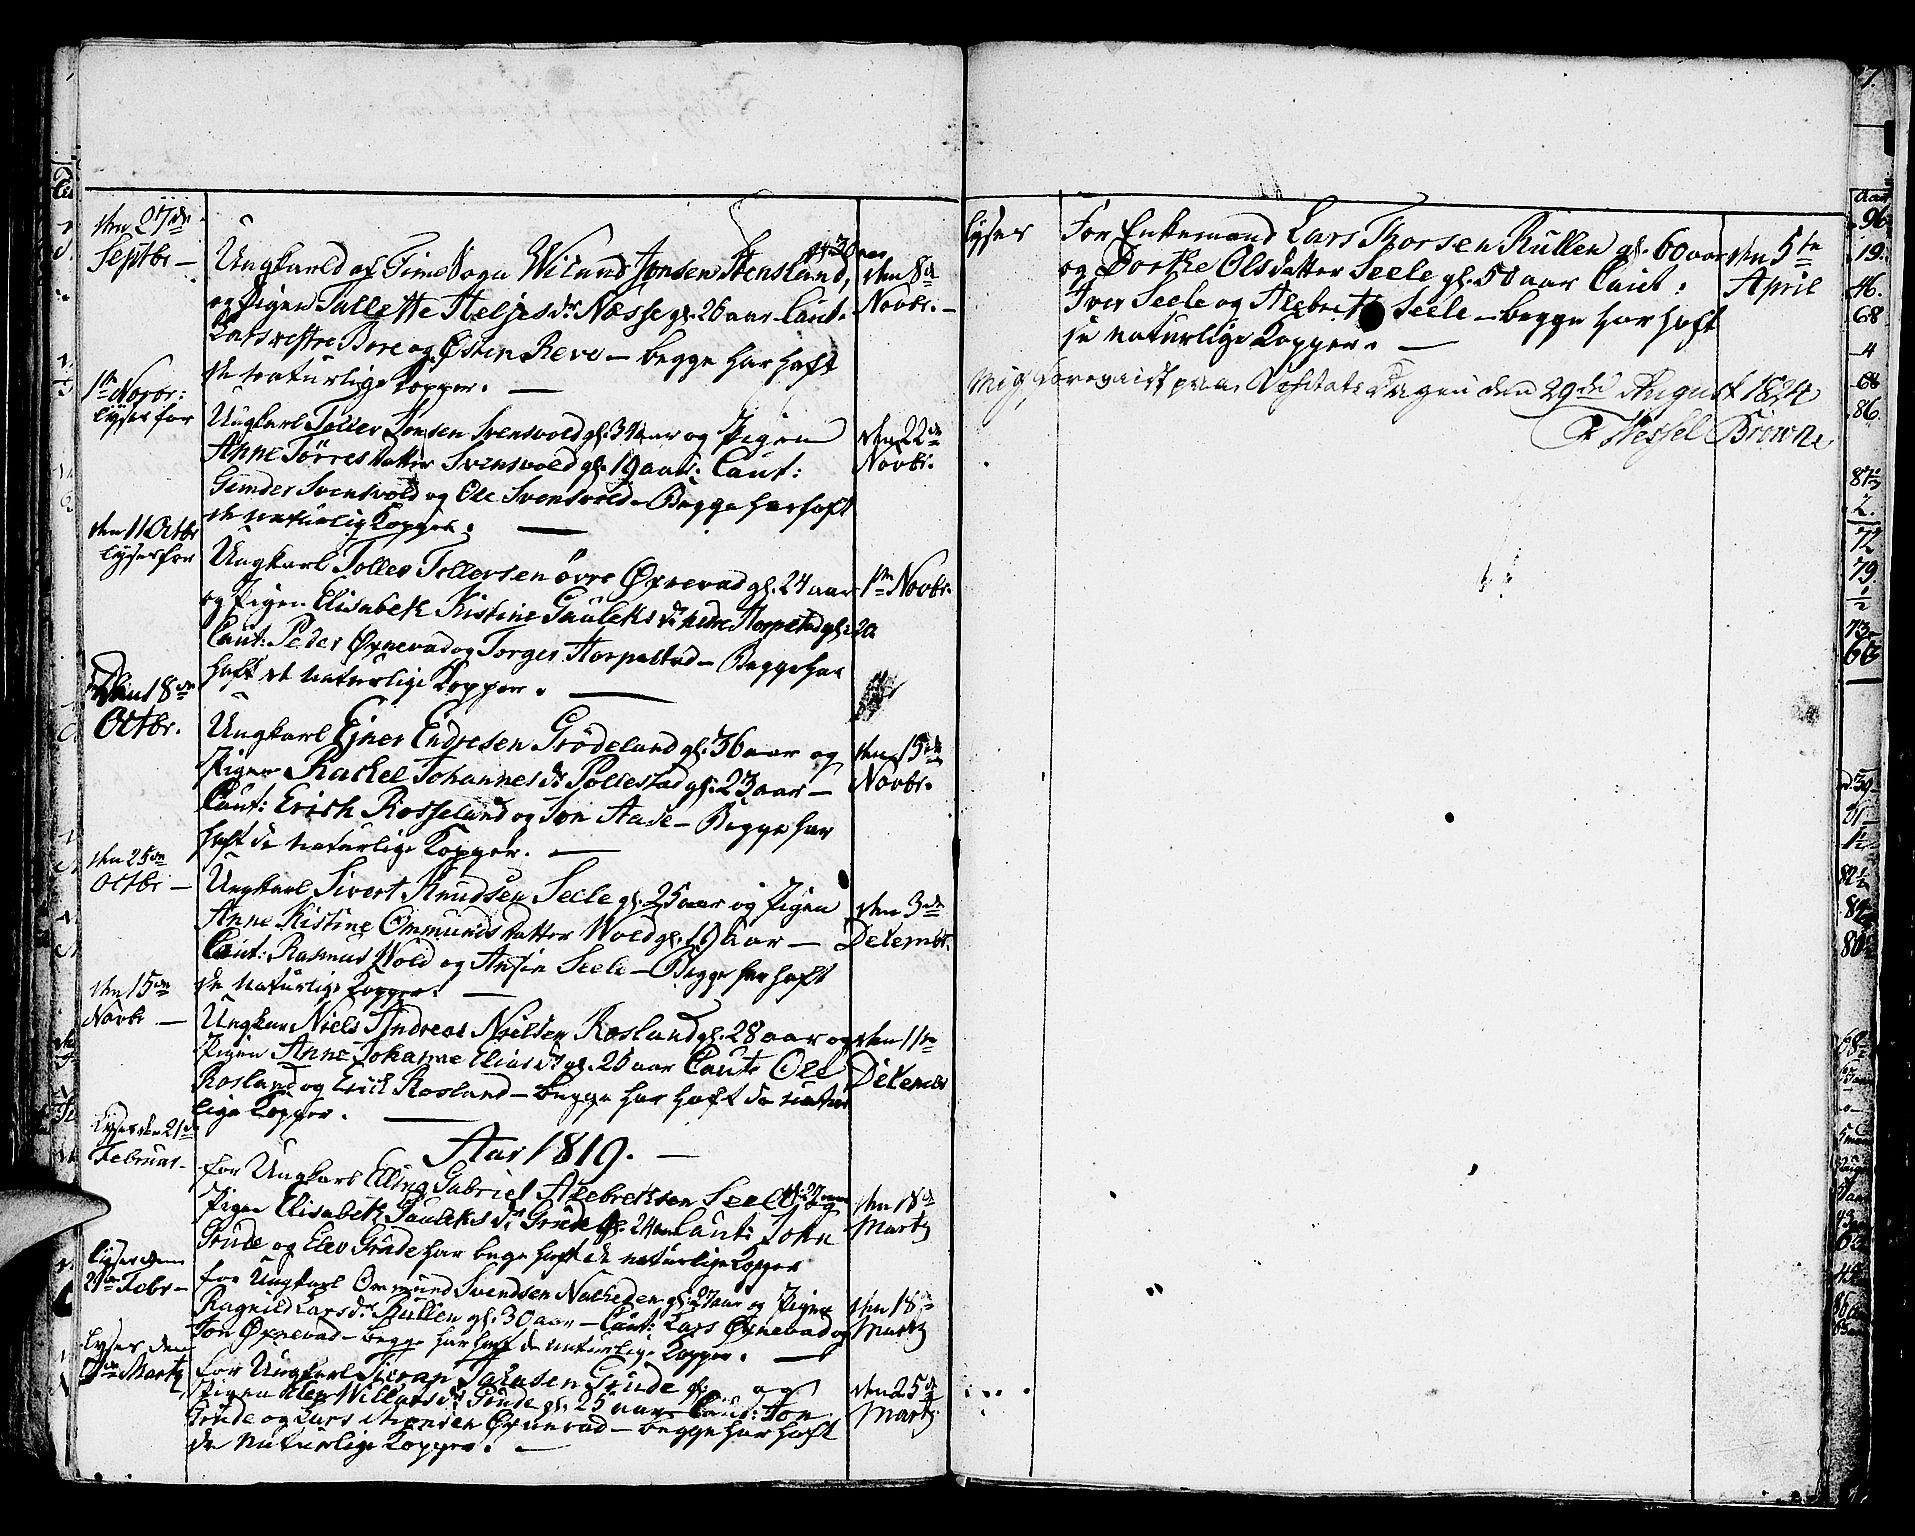 den 27de
Septbr –
Ungkarld af Time Sogn Wiland Jonsen Stensland, gl. 30 aar
og Pigen Tallette Heljesdr Næsse gl. 26 aar Caut.
Lars vestre Bore og Østen Reve – begge har haft
de naturlige Kopper. —
den 8de
Novbr. –
1ste Novbr:
lyser for
Ungkarl Toller Jonsen Svensvold gl. 34 aar og Pigen
Anne Tørresdatter Svensvold gl. 19 aar: Caut:
Gunder Svensvold og Ole Svensvold – Begge har haft
de naturlig Kopper. —
den 22de
Novbr.
den 11 Octbr
lyser for
Ungkarl Tolles Tollersen övre Øxnevad gl. 24 aar
og Pigen Elisabeth Kistine Paulsdr nedre Horpestad gl. 20
Caut: Peder Øxnevad og Torger Horpestad – Begge har
haft de naturlige Kopper. —
1ste Novbr.
den 18de
Octbr.
Ungkarl Ejner Endresen Grödeland gl. 36 aar og
Pigen Rachel Johannesdr Pollestad gl. 23 aar –
Caut: Erich Rosseland og Jon Aase – Begge har
haft de naturlige Kopper. —
den 15de
Novbr.
den 25de
Octbr –
Ungkarl Sivert Knudsen Seele gl. 25 aar og Pigen
Anne Kistine Ommundsdatter Wold gl. 19 aar –
Caut: Rasmus Wold og Ansin Seele – Begge har haft
de naturlige Kopper. —
den 3de
Decembr.
den 15de
Novbr –
Ungkar Niels Andreas Nielsen Rosland gl. 28 aar og
Pigen Anne Johanne Eliasdr gl. 26 aar Caut: Ole
Rosland og Erich Rosland – begge har haft de natur
lige Kopper. —
den 11te
Decembr
Aar 1819. —
Lyser den 21de
Februar –
for Ungkarl Elling Gabriel Asebrektsen Seele gl. 22 aar og
Pigen Elisabeth Paulsdr Grude gl. 24 aar Caut: John
Grude og Elev Grude har bege haft de naturlige Kopper
den 18de
Martz
lyser den
21de Febr –
for Ungkarl Ommund Svendsen Nalheden gl. 27 aar og Pigen
Ragnild Larsdr Rullen gl. 30 aar – Caut: Lars Øxnevad og
Jon Øxnevad – begge har haft de naturlige Kopper. —
den 18de
Martz
Lyser den
7de Martz
for Ungkarl Sierap Jonasen Grude gl. og
Pigen Elen Willasdr Grude gl. 25 aar – Caut: Jon
Grude og Lars Monsen Øxnevad – begge har haft
de naturlige Kopper. –
den 25de
Martz
lyser
For Enkemand Lars Thorsen Rullen gl. 60 aar
og Dorthe Olsdatter Seele gl. 50 aar Caut:
Iver Seele og Asebrect Seele – begge har haft
de naturlige Kopper. —
den 5te
April
mig forevaist paa Visitats Dagen den 29de August 1824
Wessel Brown